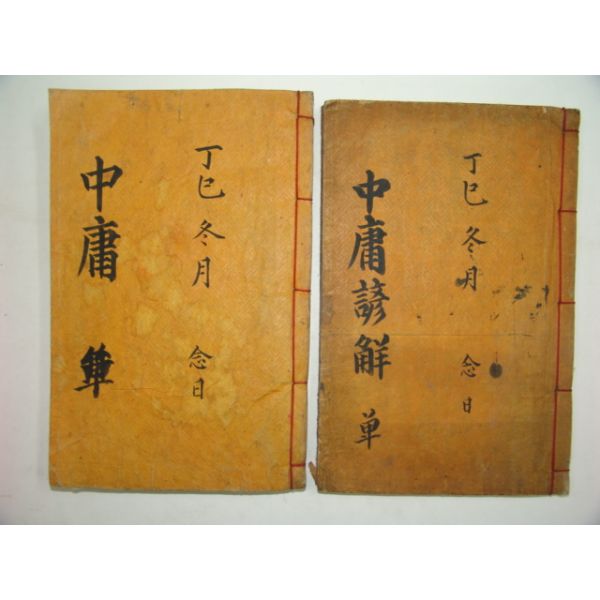 丁巳 冬月 念日
中庸 單
丁巳 冬月 念日
中庸諺觧 单